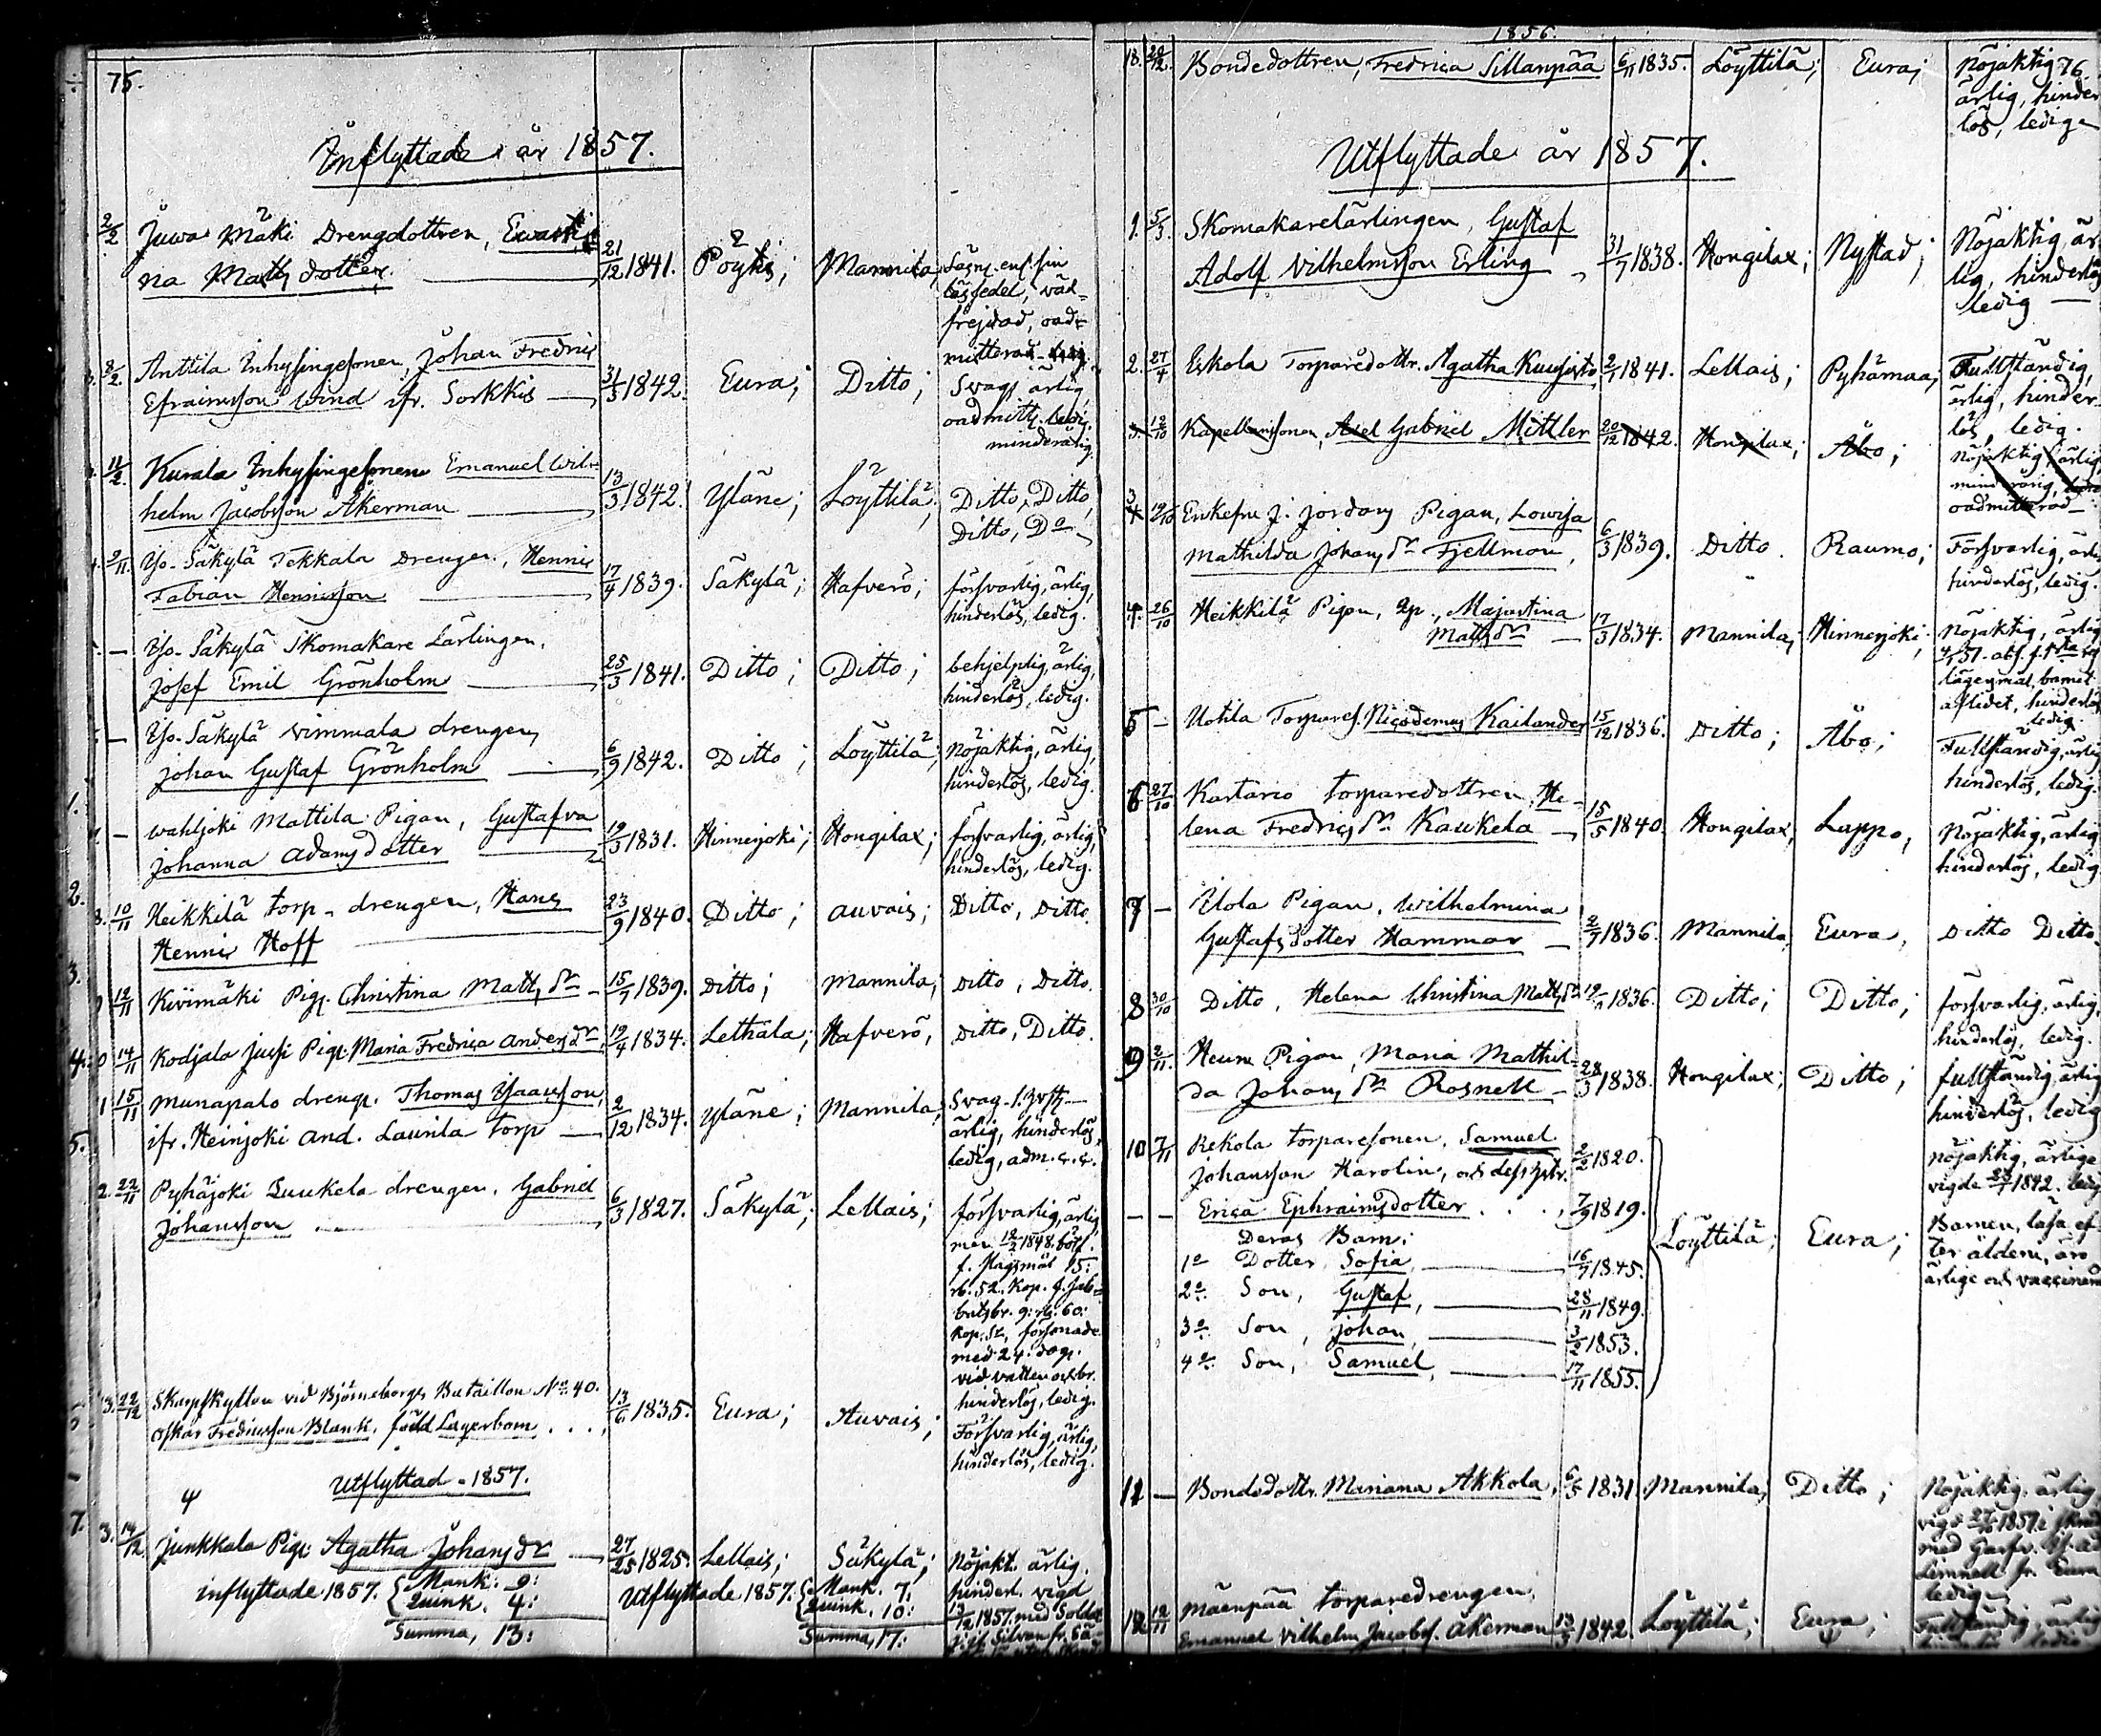 75.
Inflyttade år 1857.
2/2 Juva Mäki Drengdottren,
na Matts dotter 21/12 1841. Pöytis; Mannila;
frejdad, oad-
mitterad
8/2. Anttila Inhysingesonen, Johan Fredric
Efraimsson Wind ifr. Sorkkis 31/3 1842. Eura; Ditto; Svag, ärlig,
oadmitt. ledig.
minderårig.
11/2 Kurala Inhysingesonen Emanuel Wil-
helm Jacobsson Åkerman 13/3 1842. Yläne; Löyttilä; Ditto, Ditto,
Ditto, Do
2/11. Yso-Säkylä Tekkala Drengen, Henric
Fabian Henricsson 17/4 1839. Säkylä; Hafverö; försvarlig, ärlig,
hinderlös, ledig.
— Yso-Säkylä Skomakare Lärlingen,
Josef Emil Grönholm 25/3 1841. Ditto; Ditto; behjelplig, ärlig,
hinderlös, ledig.
— Yso-Säkylä Vimmala drengen,
Johan Gustaf Grönholm 6/9 1842. Ditto; Löyttilä; Nöjaktig, ärlig,
hinderlös, ledig.
— Wahljoki Mattila Pigan, Gustafva
Johanna Adamsdotter 19/3 1831. Hinnerjoki; Hongilax; försvarlig, ärlig,
hinderlös, ledig.
8. 10/11 Heikkilä torp-drengen, Hans
Henric Hoff 23/9 1840. Ditto; Auvais; Ditto, Ditto.
12/11 Kivimäki Pig. Christina Matts dr 15/7 1839. Ditto; Mannila; Ditto; Ditto.
14/11 Kodjala Jussi Pig. Maria Fredrica Anders dr 19/4 1834. Lethala; Hafverö; Ditto, Ditto.
15/11 Munapalo dreng. Thomas Isaacsson,
ifr. Heinjoki And. Laurila torp 2/12 1834. Yläne; Mannila;
ärlig, hinderlös,
ledig, adm.
22/11 Pyhäjoki Luukela drengen, Gabriel
Johansson 6/3 1827. Säkylä; Lellais; försvarlig, ärlig,
men 12/2 1848. böt.
f. slagsmål 15:
rb. 52. Kop.
9: rb. 60:
Kop. Sr, försonade
med 24. dag.
vid vatten och br.
hinderlös, ledig.
22/12 Skarpskytten vid Björneborgs Bataillon No 40.
Oskar Fredricsson Blank, född Lagerbom 13/6 1835. Eura; Auvais; Försvarlig, ärlig,
hinderlös, ledig.
Utflyttad 1857.
14/12 Junkkala Pig. Agatha Johans dr 27/25 1825. Lellais; Säkylä; Nöjakt. ärlig,
hinderl. vigd
13/12 1857. med Soldat
Silvan fr. Sä-
inflyttade 1857. { Mank. 9:
Quink. 4:
Summa, 13:
Utflyttade 1857. { Mank. 7.
Quink. 10:
Summa, 17:
1856.
13. 29/12. Bondedottren, Fredrica Sillanpää 6/11 1835. Löyttilä; Eura; Nöjaktig 76.
ärlig, hinder
lös, ledig
Utflyttade år 1857.
1. 5/3. Skomakarelärlingen, Gustaf
Adolf Vilhelmsson Erling 31/7 1838. Hongilax; Nystad; Nöjaktig, är
lig, hinderlös
ledig
2. 27/4 Eskola Torparedottr. Agatha Kuusisto 2/7 1841. Lellais; Pyhämaa; Fullständig,
ärlig, hinder-
lös, ledig.
3. 12/10 Kapellansonen, Axel Gabriel Mittler 20/12 1842. Hongilax; Åbo; nöjaktig, ärlig,
oadmitterad
3 19/10 Enkefru J. Jordans Pigan, Lovisa
Mathilda Johans dr Fjellman, 6/3 1839. Ditto. Raumo; Försvarlig, ärlig,
hinderlös, ledig.
4. 26/10 Heikkilä Pigan, Majastina
Matts dr 17/3 1834. Mannila; Hinnerjoki; Nöjaktig, ärlig
lägersmål, barnet
aflidet, hinderlös
ledig.
5 — Uotila Torpares. Nicodemus Kailander 15/12 1836. Ditto; Åbo; Fullständig, ärlig
hinderlös, ledig.
6 27/10 Kartano torparedottren, He-
lena Fredrics dr Kaukela 15/5 1840. Hongilax; Lappo, Nöjaktig, ärlig
hinderlös, ledig
7 — Ilola Pigan, Wilhelmina
Gustafsdotter Hammar 2/7 1836. Mannila, Eura, Ditto Ditto.
8 30/10 Ditto, Helena Christina Matts dr 1836. Ditto; Ditto; försvarlig, ärlig,
hinderlös, ledig.
9 2/11. Heurn Pigan, Maria Mathil-
da Johans dr Rosnell 28/3 1838. Hongilax; Ditto; fullständig, ärlig
hinderlös, ledig
10 7/11 Rekola torparesonen, Samuel
Johansson Karolin, och dess hstr. 2/2 1820. nöjaktig, ärliga
— — Erica Ephraimsdotter 7/9 1819. vigde 1842.
Deras Barn: Löyttilä; Eura; Barnen, läsa ef-
1o Dotter Sofia, 16/7 1845. ter åldern, äro
2o. Son, Gustaf, 28/11 1849. ärlige och vaccinerad
3o. Son, Johan, 3/2 1853.
4o. Son, Samuel, 17/11 1855.
11 — Bondedottr. Mariana Akkola, 6/5 1831. Mannila; Ditto; Nöjaktig, ärlig,
vigd 27/12 1857
Limnell fr. Eura
ledig
12 12/11 Mäenpää torparedrengen,
Emanuel Vilhelm Jacobs. Åkerman 13/3 1842. Löyttilä; Eura; Fullständig, ärlig